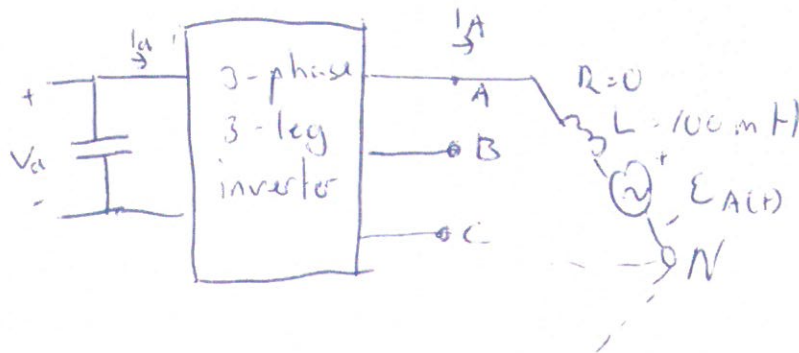 Id
IA
+
Vd
-
3-phase
3-leg
inverter
A
B
C
R=0
L = 100 mH
+
EA(t)
N